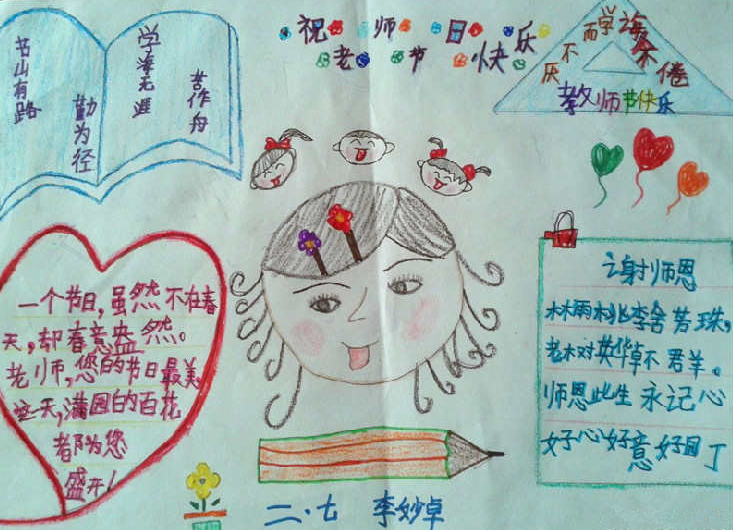 书山有路
勤为径
学海无涯
苦作舟
祝老师节日快乐
学而不厌
海人不倦
教师节快乐
一个节日,虽然不在春
天,却春意盎然。
老师,您的节日最美
这天,满园的百花
都为您
盛开!
谢师恩
林雨桃李舍若珠,
老树英华卓不群。
师恩此生永记心
好心好意好园丁
二·七 李妙卓